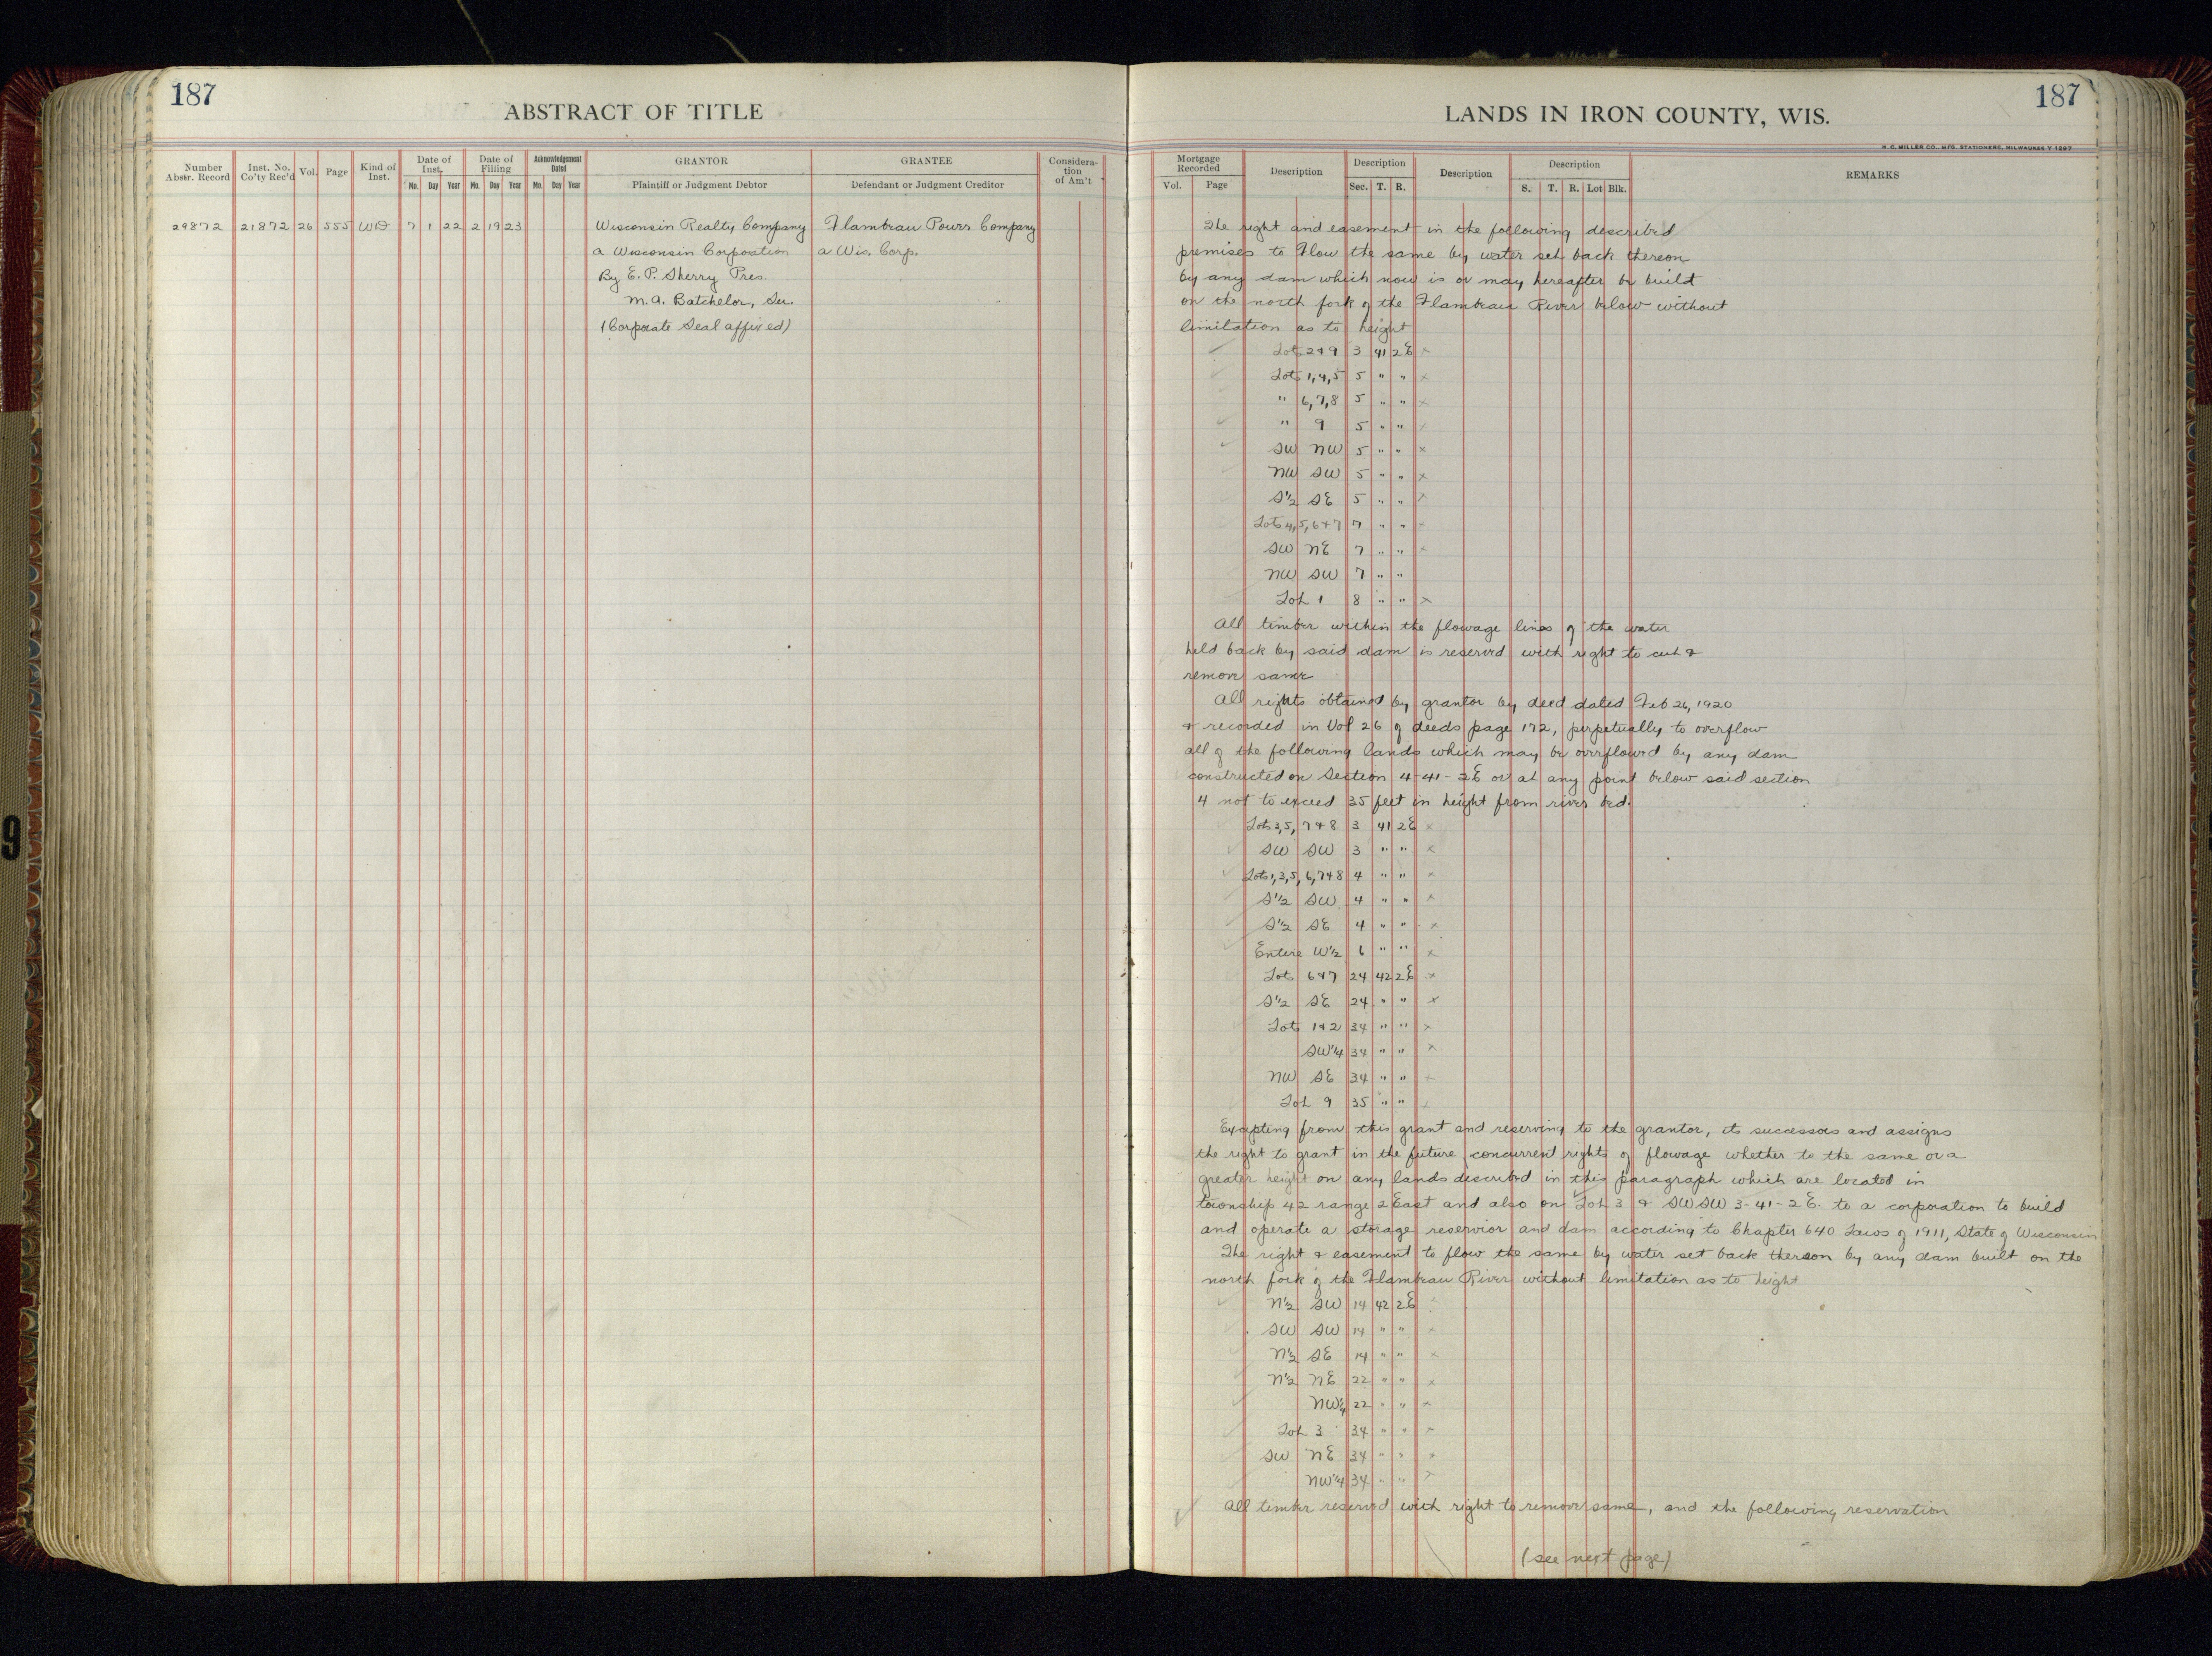 187
ABSTRACT OF TITLE
Number Abstr. Record
Inst. No. Co'ty Rec'd
Vol.
Page
Kind of Inst.
Date of Inst.
Mo. Day Year
Date of Filling
Mo. Day Year
Acknowledgement Dated
Mo. Day Year
GRANTOR
Plaintiff or Judgment Debtor
GRANTEE
Defendant or Judgment Creditor
Considera-
tion
of Am't
29872 21872 26 555 WD 7 1 22 2 19 23 Wisconsin Realty Company Flambeau Power Company
a Wisconsin Corporation a Wis. Corp.
By E. P. Sherry Pres.
M. A. Batchelor, Sec.
(Corporate Seal affixed)
LANDS IN IRON COUNTY, WIS.
187
H. C. MILLER CO., MFG. STATIONERS, MILWAUKEE
Mortgage Recorded
Vol. Page
Description
Description
Sec. T. R.
Description
Description
S. T. R. Lot Blk.
REMARKS
The right and easement in the following described
premises to Flow the same by water set back thereon
by any dam which now is or may hereafter be built
on the north fork of the Flambeau River below without
limitation as to height
Lot 2 & 9 3 41 2E x
Lots 1,4,5 5 " " x
" 6,7,8 5 " " x
" 9 5 " " x
SW NW 5 " " x
NW SW 5 " " x
S½ SE 5 " " x
Lots 4,5,6 & 7 7 " " x
SW NE 7 " " x
NW SW 7 " "
Lot 1 8 " " x
All timber within the flowage lines of the water
held back by said dam is reserved with right to cut &
remove same
All rights obtained by grantor by deed dated Feb 26, 1920
& recorded in Vol 26 of deeds page 172, perpetually to overflow
all of the following lands which may be overflowed by any dam
constructed on Section 4-41-2E or at any point below said section
4 not to exceed 35 feet in height from river bed.
Lots 3,5,7 & 8 3 41 2E x
SW SW 3 " " x
Lots 1,3,5,6,7 & 8 4 " " x
S½ SW 4 " " x
S½ SE 4 " " x
Entire W½ 6 " " x
Lots 6 & 7 24 42 2E x
S½ SE 24 " " x
Lots 1 & 2 34 " " x
SW¼ 34 " " x
NW SE 34 " " x
Lot 9 35 " " x
Excepting from this grant and reserving to the grantor, its successors and assigns
the right to grant in the future concurrent rights of flowage whether to the same or a
greater height on any lands described in this paragraph which are located in
township 42 range 2 East and also on Lot 3 & SW SW 3-41-2E. to a corporation to build
and operate a storage reservior and dam according to Chapter 640 Laws of 1911, State of Wisconsin
The right & easement to flow the same by water set back thereon by any dam built on the
north fork of the Flambeau River without limitation as to height
N½ SW 14 42 2E x
SW SW 14 " " x
N½ SE 14 " " x
N½ NE 22 " " x
NW¼ 22 " " x
Lot 3 34 " " x
SW NE 34 " " x
NW¼ 34 " " x
All timber reserved with right to remove same, and the following reservation
(see next page)
9